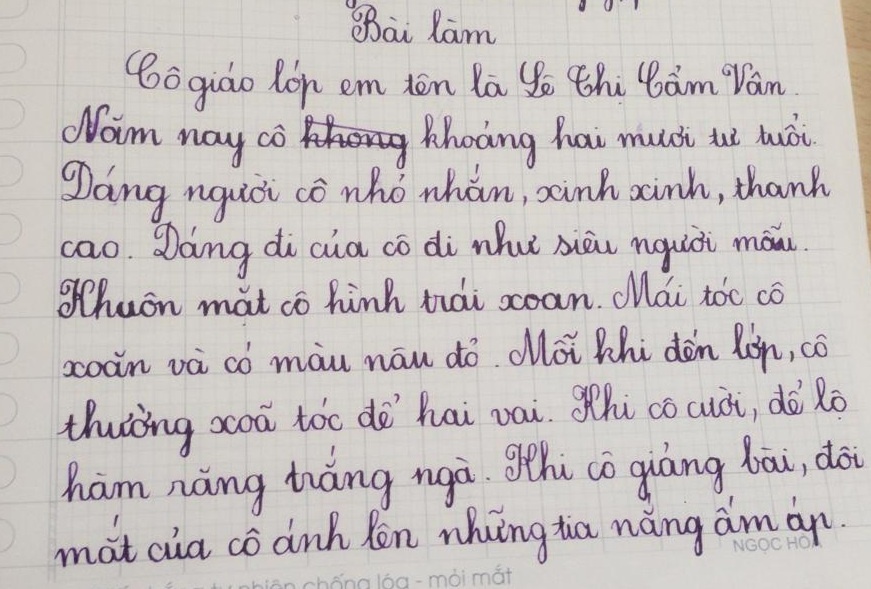 Bài làm
Cô giáo lớp em tên là Lê Thị Cẩm Vân.
Năm nay cô khong khoảng hai mươi tư tuổi.
Dáng người cô nhỏ nhắn, xinh xinh, thanh
cao. Dáng đi của cô đi như siêu người mẫu.
Khuôn mặt cô hình trái xoan. Mái tóc cô
xoăn và có màu nâu đỏ. Mỗi khi đến lớp, cô
thường xoã tóc để hai vai. Khi cô cười, để lộ
hàm răng trắng ngà. Khi cô giảng bài, đôi
mắt của cô ánh lên những tia nắng ấm áp.
NGỌC HÒA
chống lóa - mỏi mắt